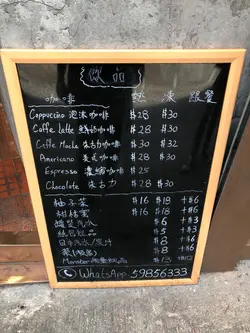 飲品
咖啡 熱 凍 跟餐
Cappuccino 泡沫咖啡 $28 $30
Caffe latte 鮮奶咖啡 $28 $30
Caffe Mocha 朱古力咖啡 $30 $32
Americano 美式咖啡 $28 $30
Espresso 濃縮咖啡 $25
Chocolate 朱古力 $28 $30
柚子茶 $16 $18 +$6
柑桔蜜 $16 $18 +$6
罐裝汽水 $6 +$3
紙包飲品 $5 +$3
日本汽水/果汁 $8 +$6
$8 +$6
Monster $13
WhatsApp 59856333